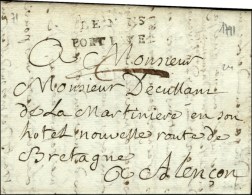 1791
A Monsieur
Monsieur Decullant
de La Martiniere en son
hotel nouvelle route de
Bretagne
a Alençon